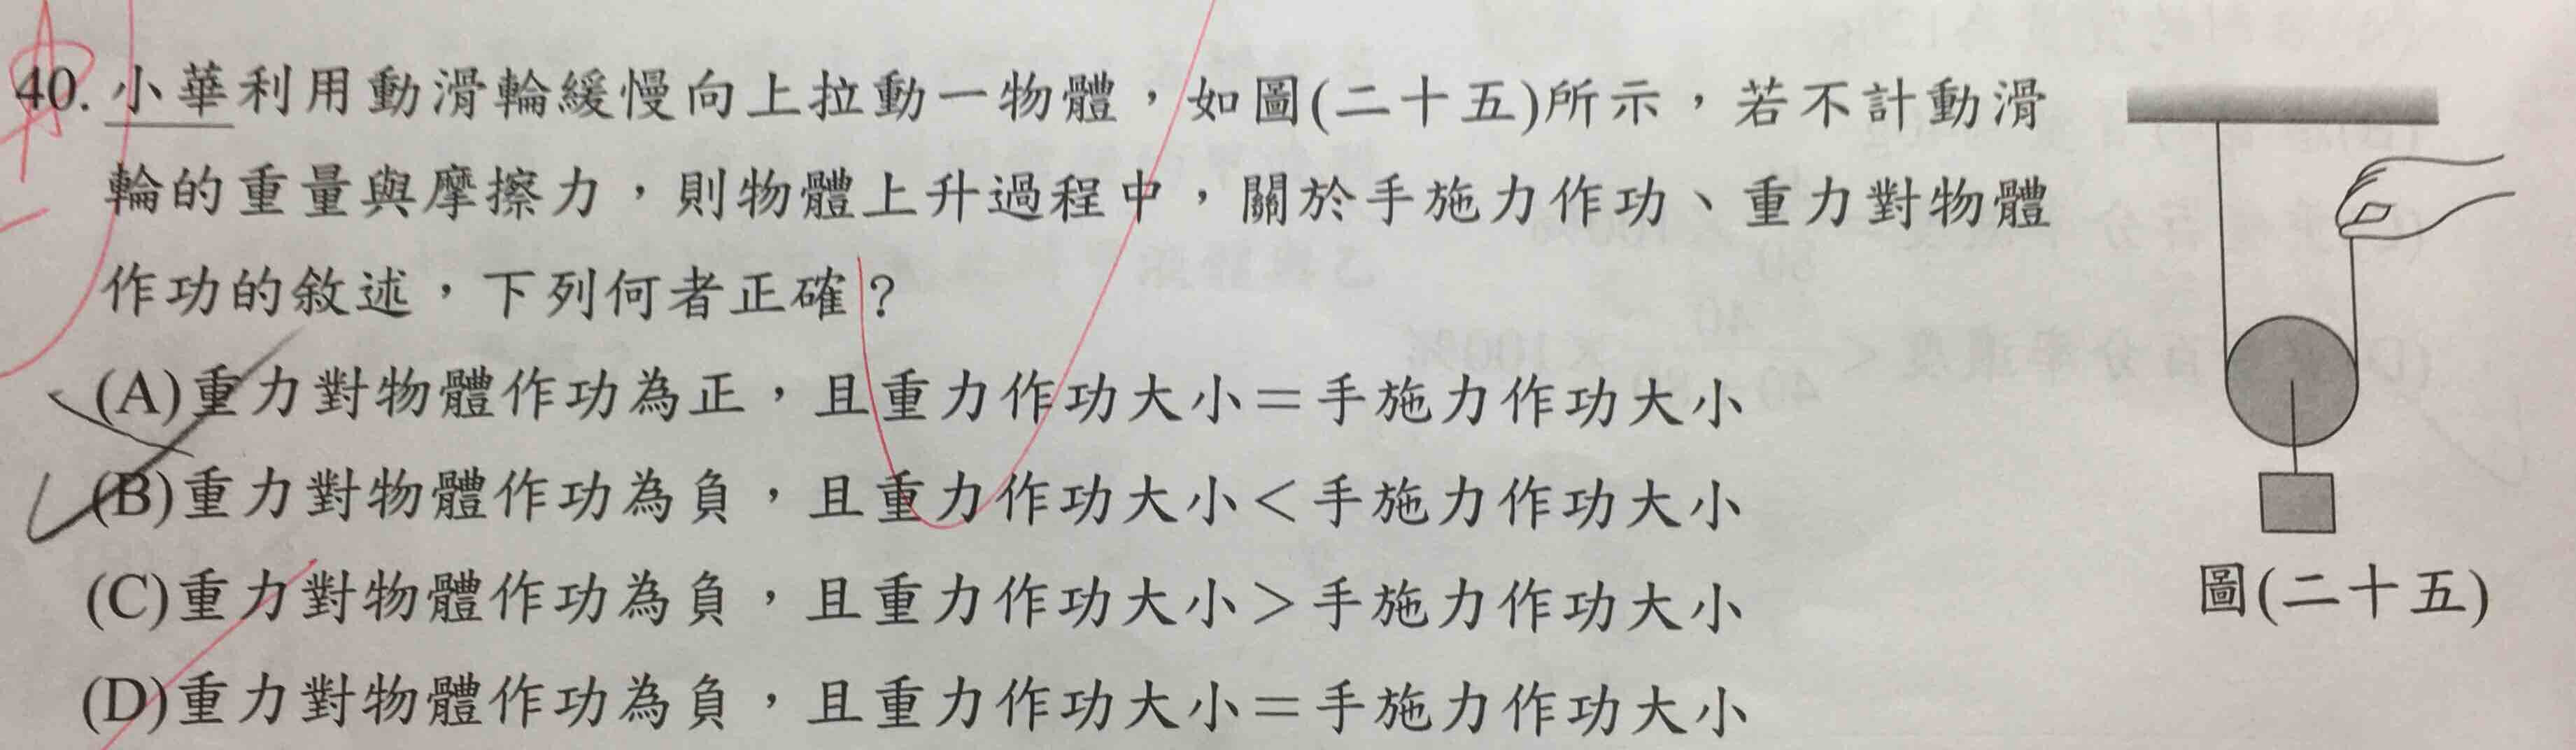 40. 小華利用動滑輪緩慢向上拉動一物體，如圖(二十五)所示，若不計動滑
輪的重量與摩擦力，則物體上升過程中，關於手施力作功、重力對物體
作功的敘述，下列何者正確？
(A)重力對物體作功為正，且重力作功大小＝手施力作功大小
(B)重力對物體作功為負，且重力作功大小＜手施力作功大小
(C)重力對物體作功為負，且重力作功大小＞手施力作功大小
(D)重力對物體作功為負，且重力作功大小＝手施力作功大小
圖(二十五)